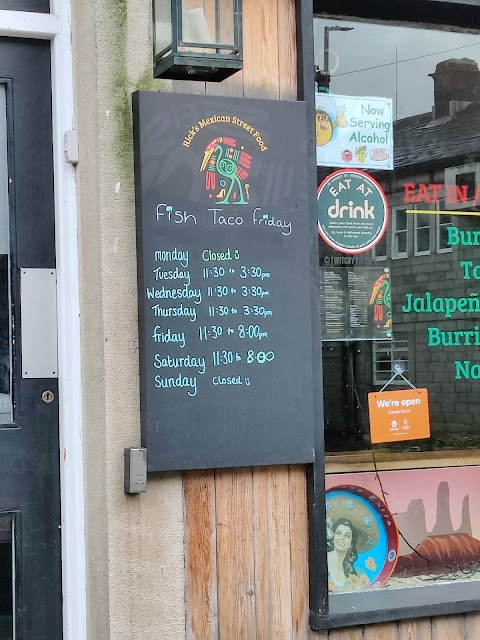 Rick's Mexican Street Food
Fish Taco friday
monday Closed
Tuesday 11:30 to 3:30pm
Wednesday 11:30 to 3:30pm
Thursday 11:30 to 3:30pm
friday 11:30 to 8:00pm
Saturday 11:30 to 8:00
Sunday Closed
Now
Serving
Alcohol
EAT AT
drink
EAT IN
Bur
Ta
Jalapeñ
Burri
Na
We're open
Come on in
Extra